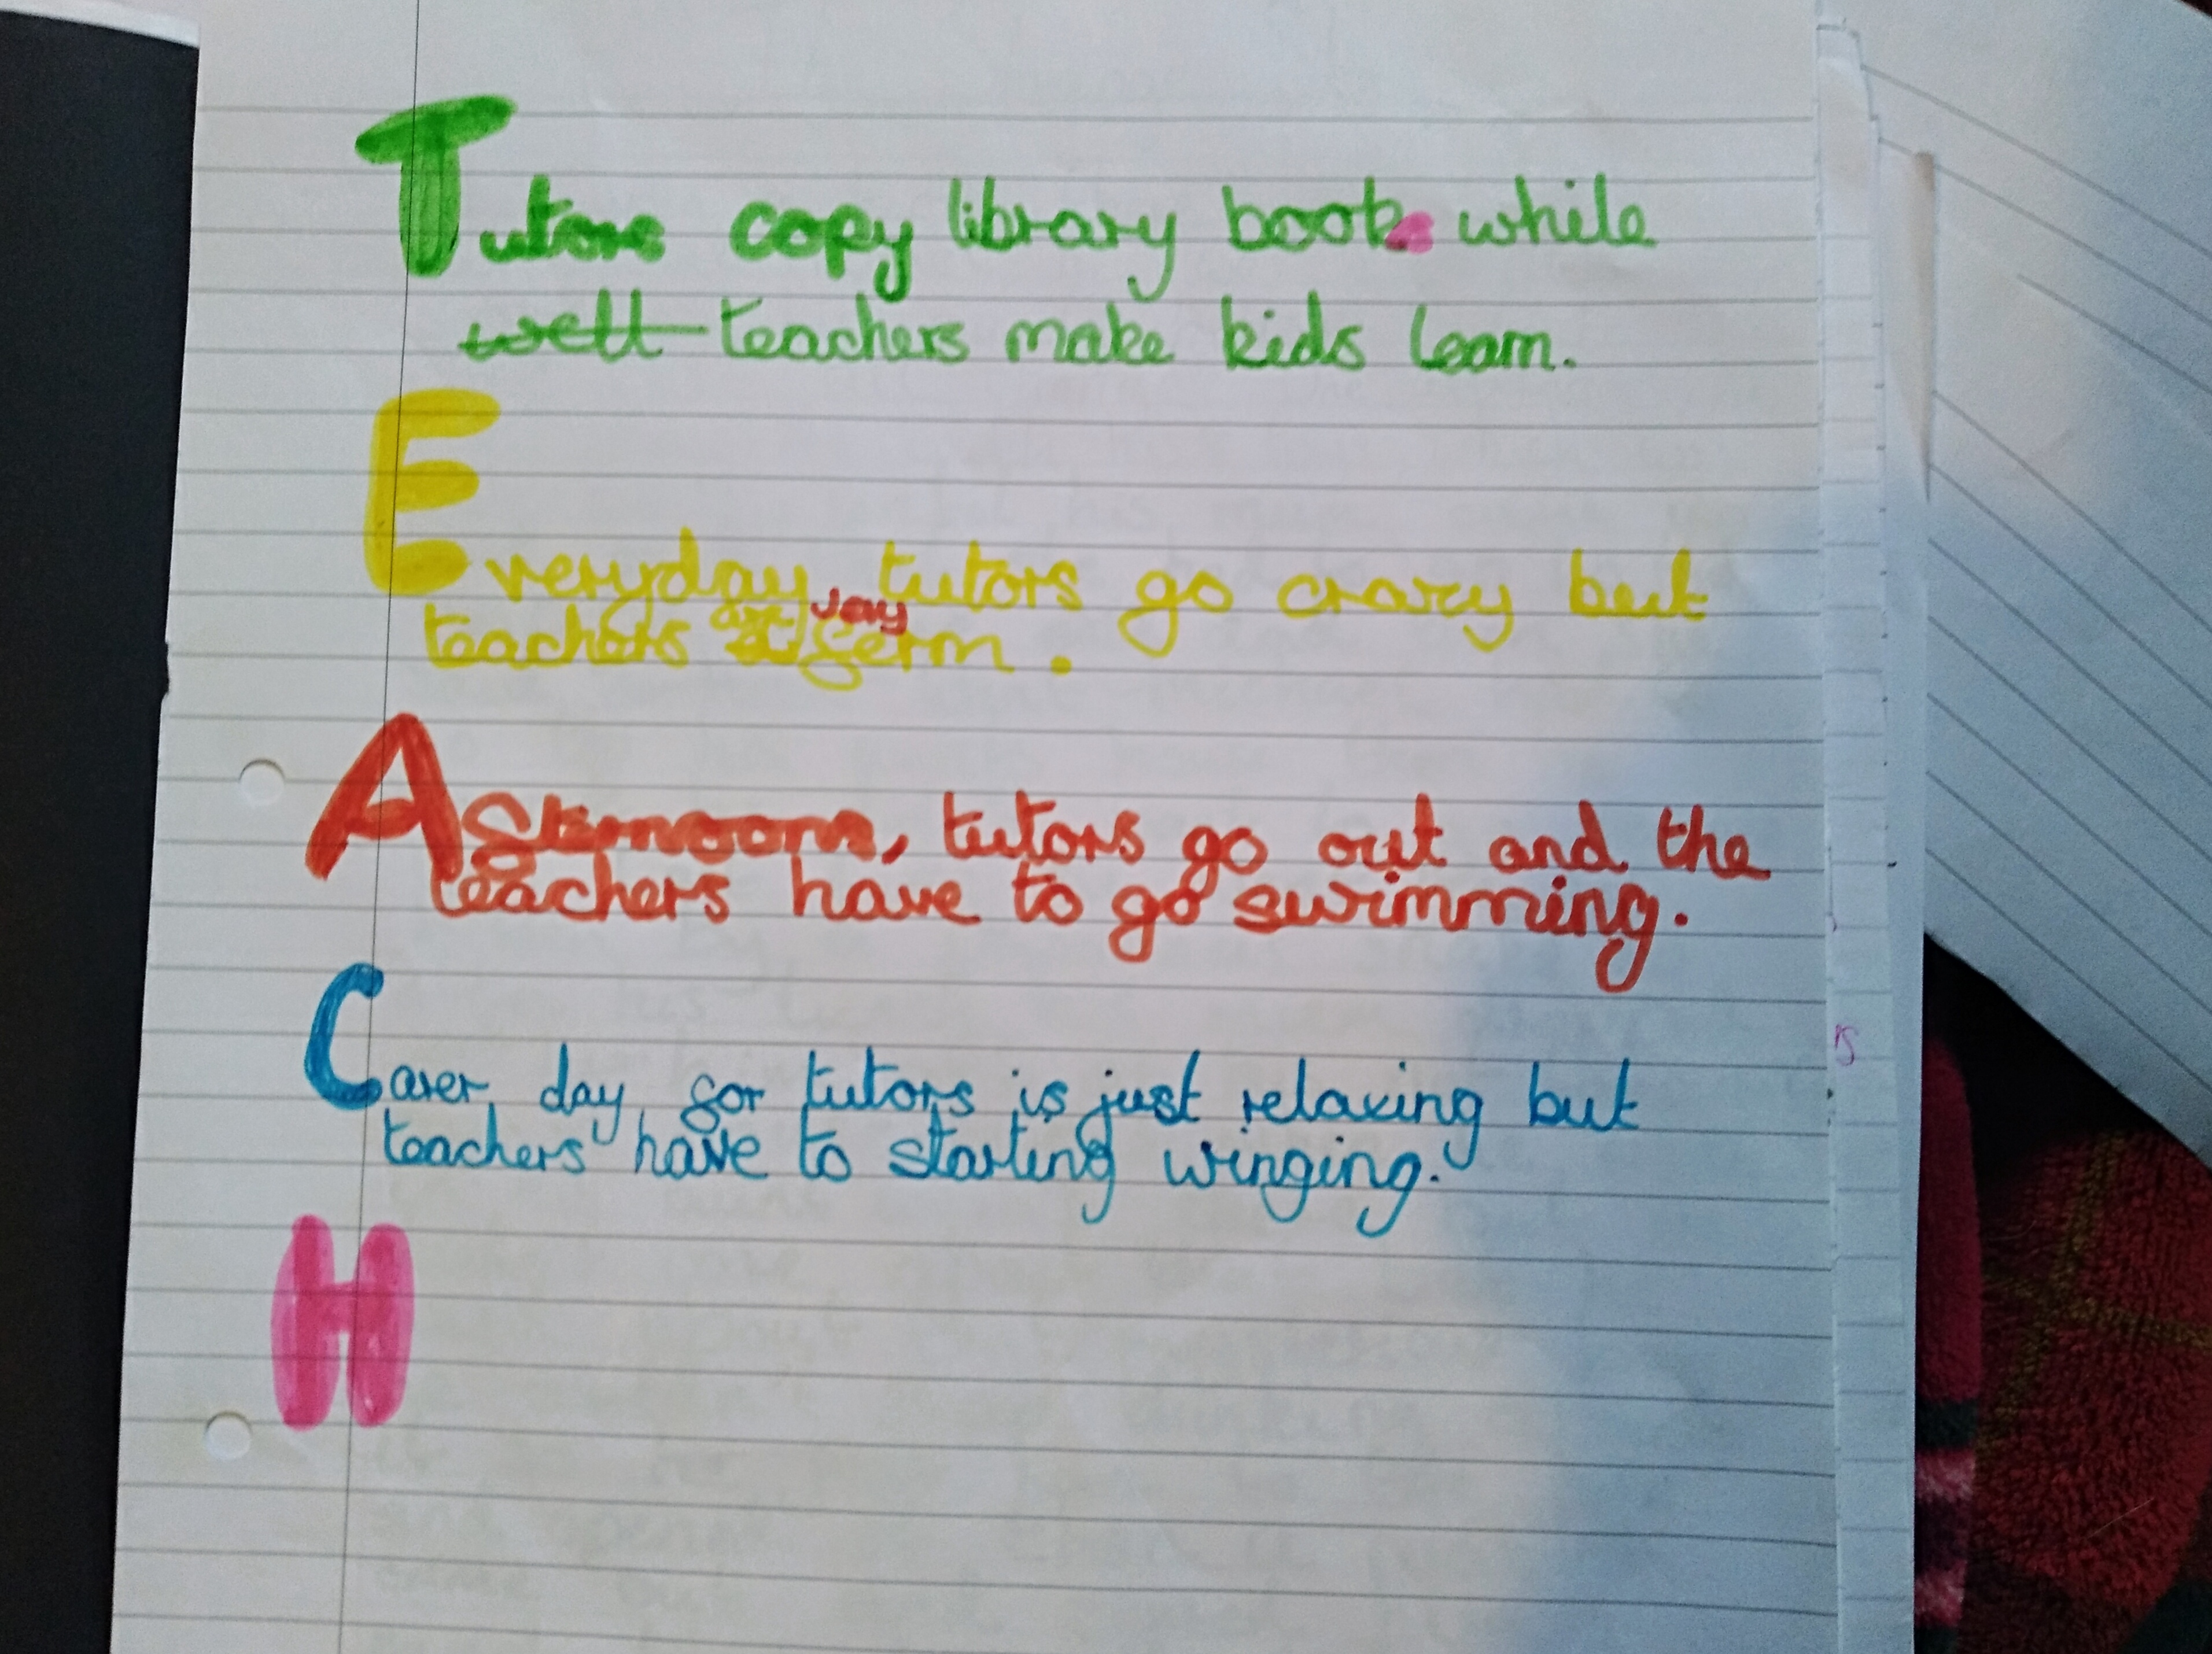 Tutors copy library book while
well teachers make kids learn.
Everyday tutors go crazy but
are Jay
teachers germ.
Afternoon, tutors go out and the
teachers have to go swimming.
Carer day for tutors is just relaxing but
teachers have to starting winging.
H